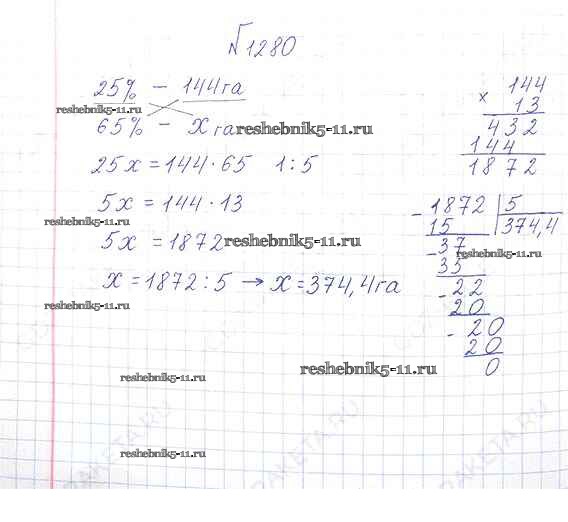 №1280
25% – 144га
reshebnik5-11.ru
65% – х га reshebnik5-11.ru
25х = 144 · 65   | : 5
5х = 144 · 13
reshebnik5-11.ru
5х = 1872 reshebnik5-11.ru
х = 1872 : 5 → х = 374,4га
reshebnik5-11.ru
reshebnik5-11.ru
reshebnik5-11.ru
144
× 13
432
144
1872
- 1872 | 5
15 374,4
- 37
reshebnik5-11.ru
35
- 22
20
- 20
20
0
reshebnik5-11.ru